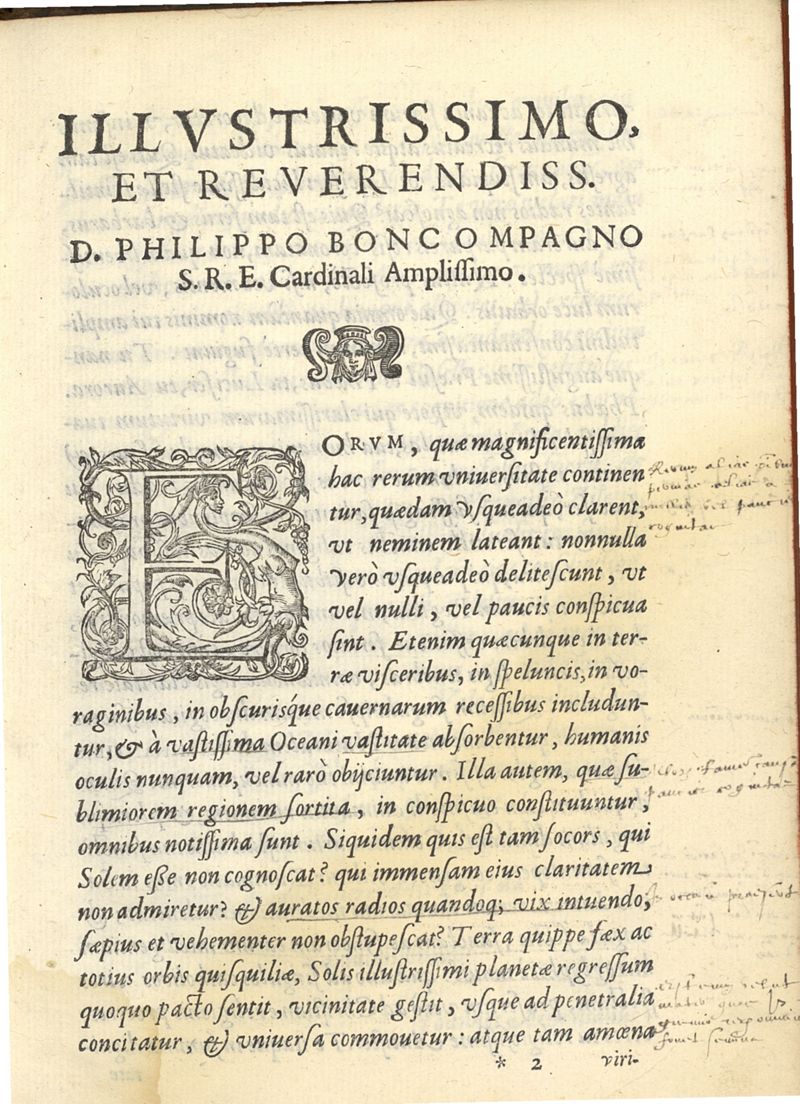 ILLVSTRISSIMO,
ET REVERENDISS.
D. PHILIPPO BONCOMPAGNO
S. R. E. Cardinali Ampliſſimo.
EORVM, quæ magnificentiſſima
hac rerum vniuerſitate continen
tur, quædam vſqueadeò clarent,
vt neminem lateant: nonnulla
verò vſqueadeò deliteſcunt, vt
vel nulli, vel paucis conſpicua
ſint. Etenim quæcunque in ter-
ræ viſceribus, in ſpeluncis, in vo-
raginibus, in obſcurisq́ue cauernarum receſſibus includun-
tur, & à vaſtiſſima Oceani vaſtitate abſorbentur, humanis
oculis nunquam, vel rarò obijciuntur. Illa autem, quæ ſu-
blimiorem regionem ſortita, in conſpicuo conſtituuntur,
omnibus notiſſima ſunt. Siquidem quis eſt tam ſocors, qui
Solem eſſe non cognoſcat? qui immenſam eius claritatem
non admiretur? & auratos radios quandoq; vix intuendo,
ſæpius et vehementer non obſtupeſcat? Terra quippe fæx ac
totius orbis quiſquiliæ, Solis illuſtriſſimi planetæ regreſſum
quoquo pacto ſentit, vicinitate geſtit, vſque ad penetralia
concitatur, & vniuerſa commouetur: atque tam amœna
* 2 viri-